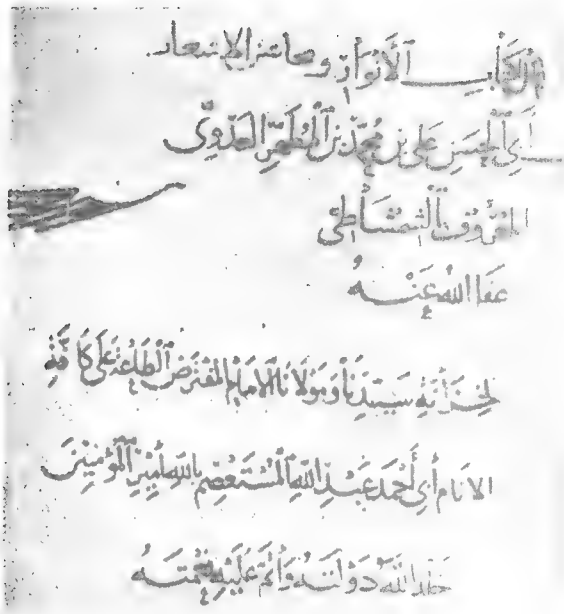 كتاب الأنوار ومحاسن الاشعار
أبي الحسن علي بن محمد بن المطهر العدوي
المعروف بالشمشاطي
عفا الله عنه
لخزانة سيدنا ومولانا الامام المفترض الطاعة على كافة
الانام أبي أحمد عبد الله المستعصم بالله أمير المؤمنين
خلد الله دولته وأتم عليه نعمته